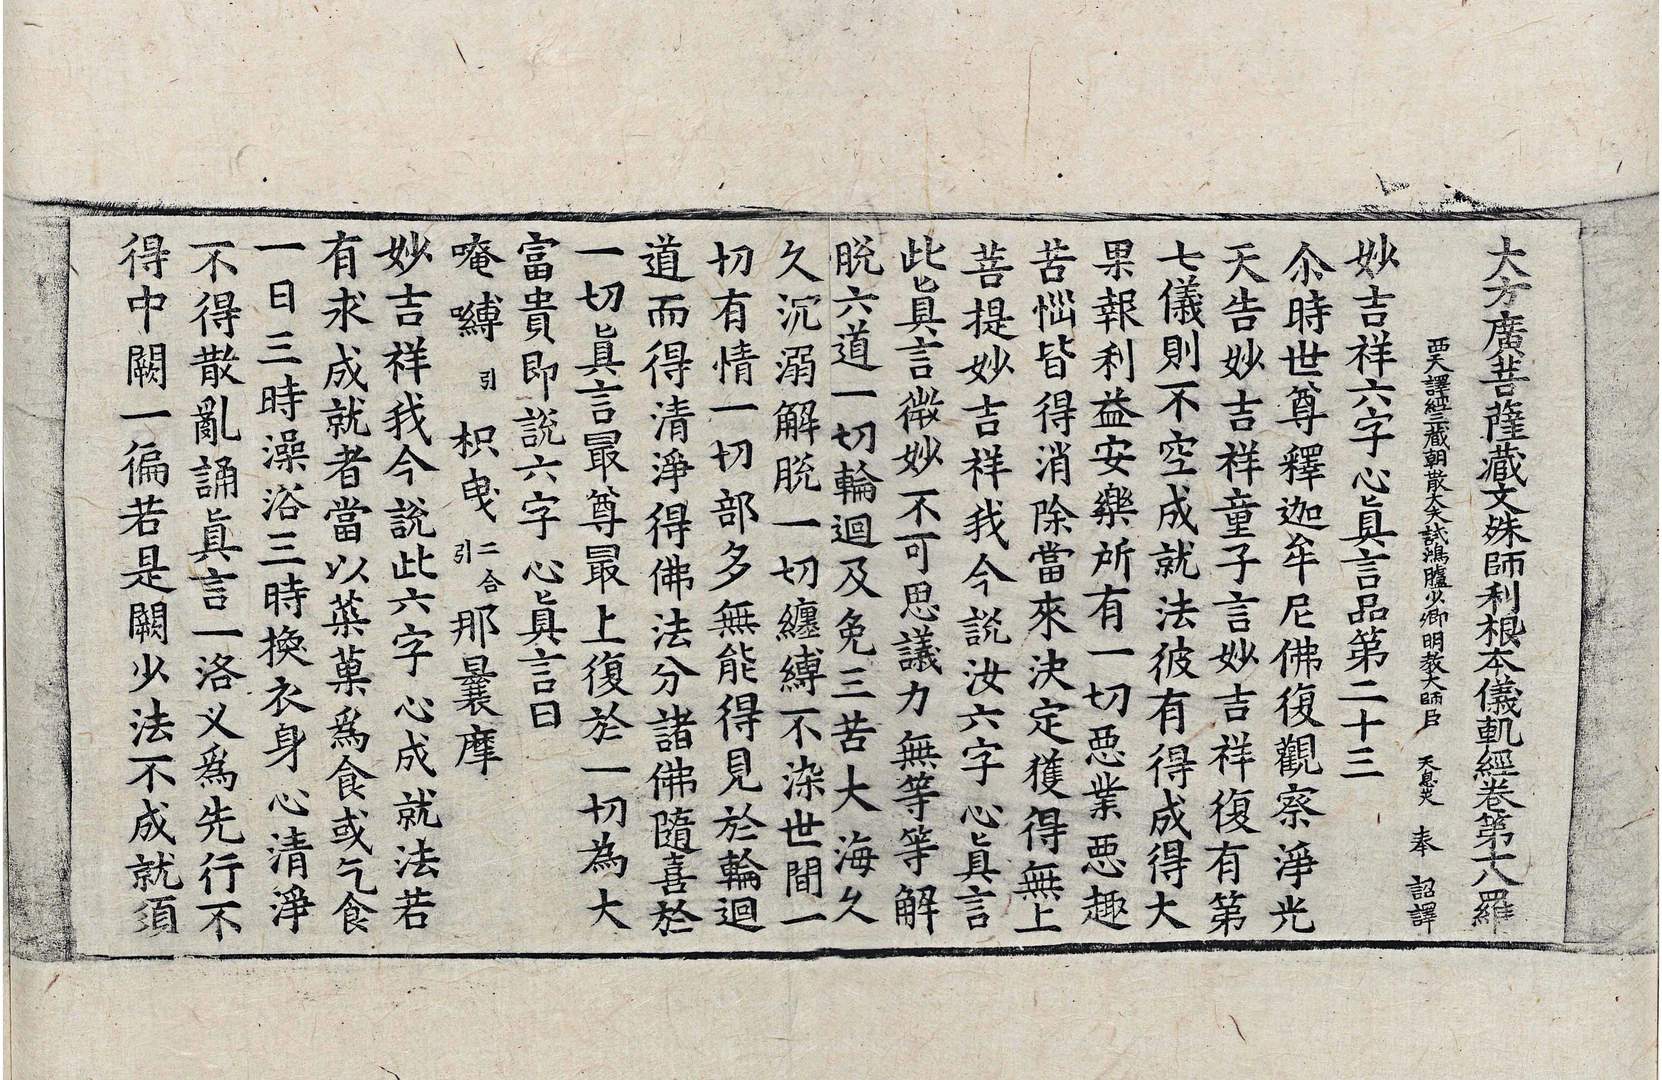 大方廣菩薩藏文殊師利根本儀軌經卷第十八 羅
西天譯經三藏朝散大夫試鴻臚少卿明教大師臣 天息災 奉 詔譯
妙吉祥六字心眞言品第二十三
尒時世尊釋迦牟尼佛復觀察淨光
天告妙吉祥童子言妙吉祥復有第
七儀則不空成就法彼有得成得大
果報利益安樂所有一切惡業惡趣
苦惱皆得消除當來決定獲得無上
菩提妙吉祥我今說汝六字心眞言
此眞言微妙不可思議力無等等解
脫六道一切輪迴及免三苦大海久
久沉溺解脫一切纏縛不染世間一
切有情一切部多無能得見於輪迴
道而得清淨得佛法分諸佛隨喜於
一切眞言最尊最上復於一切為大
富貴即說六字心眞言曰
唵嚩引枳曳二合引那曩摩
妙吉祥我今說此六字心成就法若
有求成就者當以菜菓爲食或乞食
一日三時澡浴三時換衣身心清淨
不得散亂誦眞言一洛叉爲先行不
得中闕一徧若是闕少法不成就須